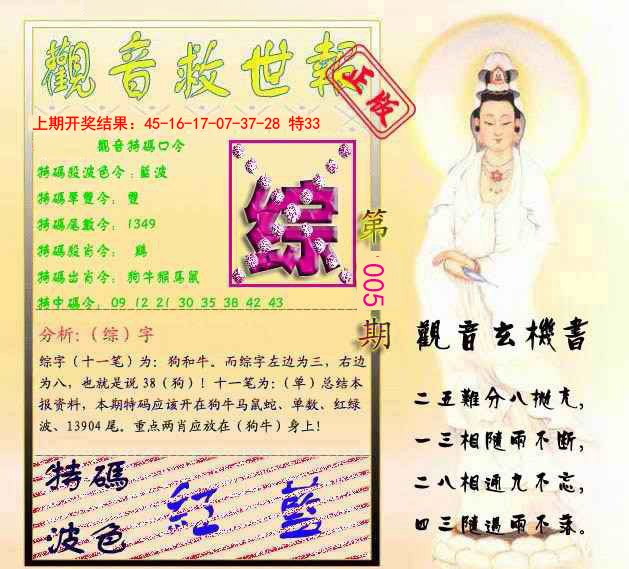 觀音救世報
正版
上期开奖结果: 45-16-17-07-37-28 特33
觀音特碼口令
特碼殺波色令:藍波
特碼單雙令: 雙
特碼尾數令: 1349
特碼殺肖令: 鷄
特碼出肖令: 狗牛猴馬鼠
特中碼令: 09 12 21 30 35 38 42 43
综
第
005
期
分析:(综)字
综字(十一笔)为: 狗和牛。而综字左边为三, 右边
为八, 也就是说38(狗)! 十一笔为:(单)总结本
报资料, 本期特码应该开在狗牛马鼠蛇、单数、红绿
波、13904尾。重点两肖应放在(狗牛)身上!
特碼
波色
紅 藍
觀音玄機書
二五難分八拋充,
一三相隨兩不断,
二八相通九不忘,
四三隨過兩不